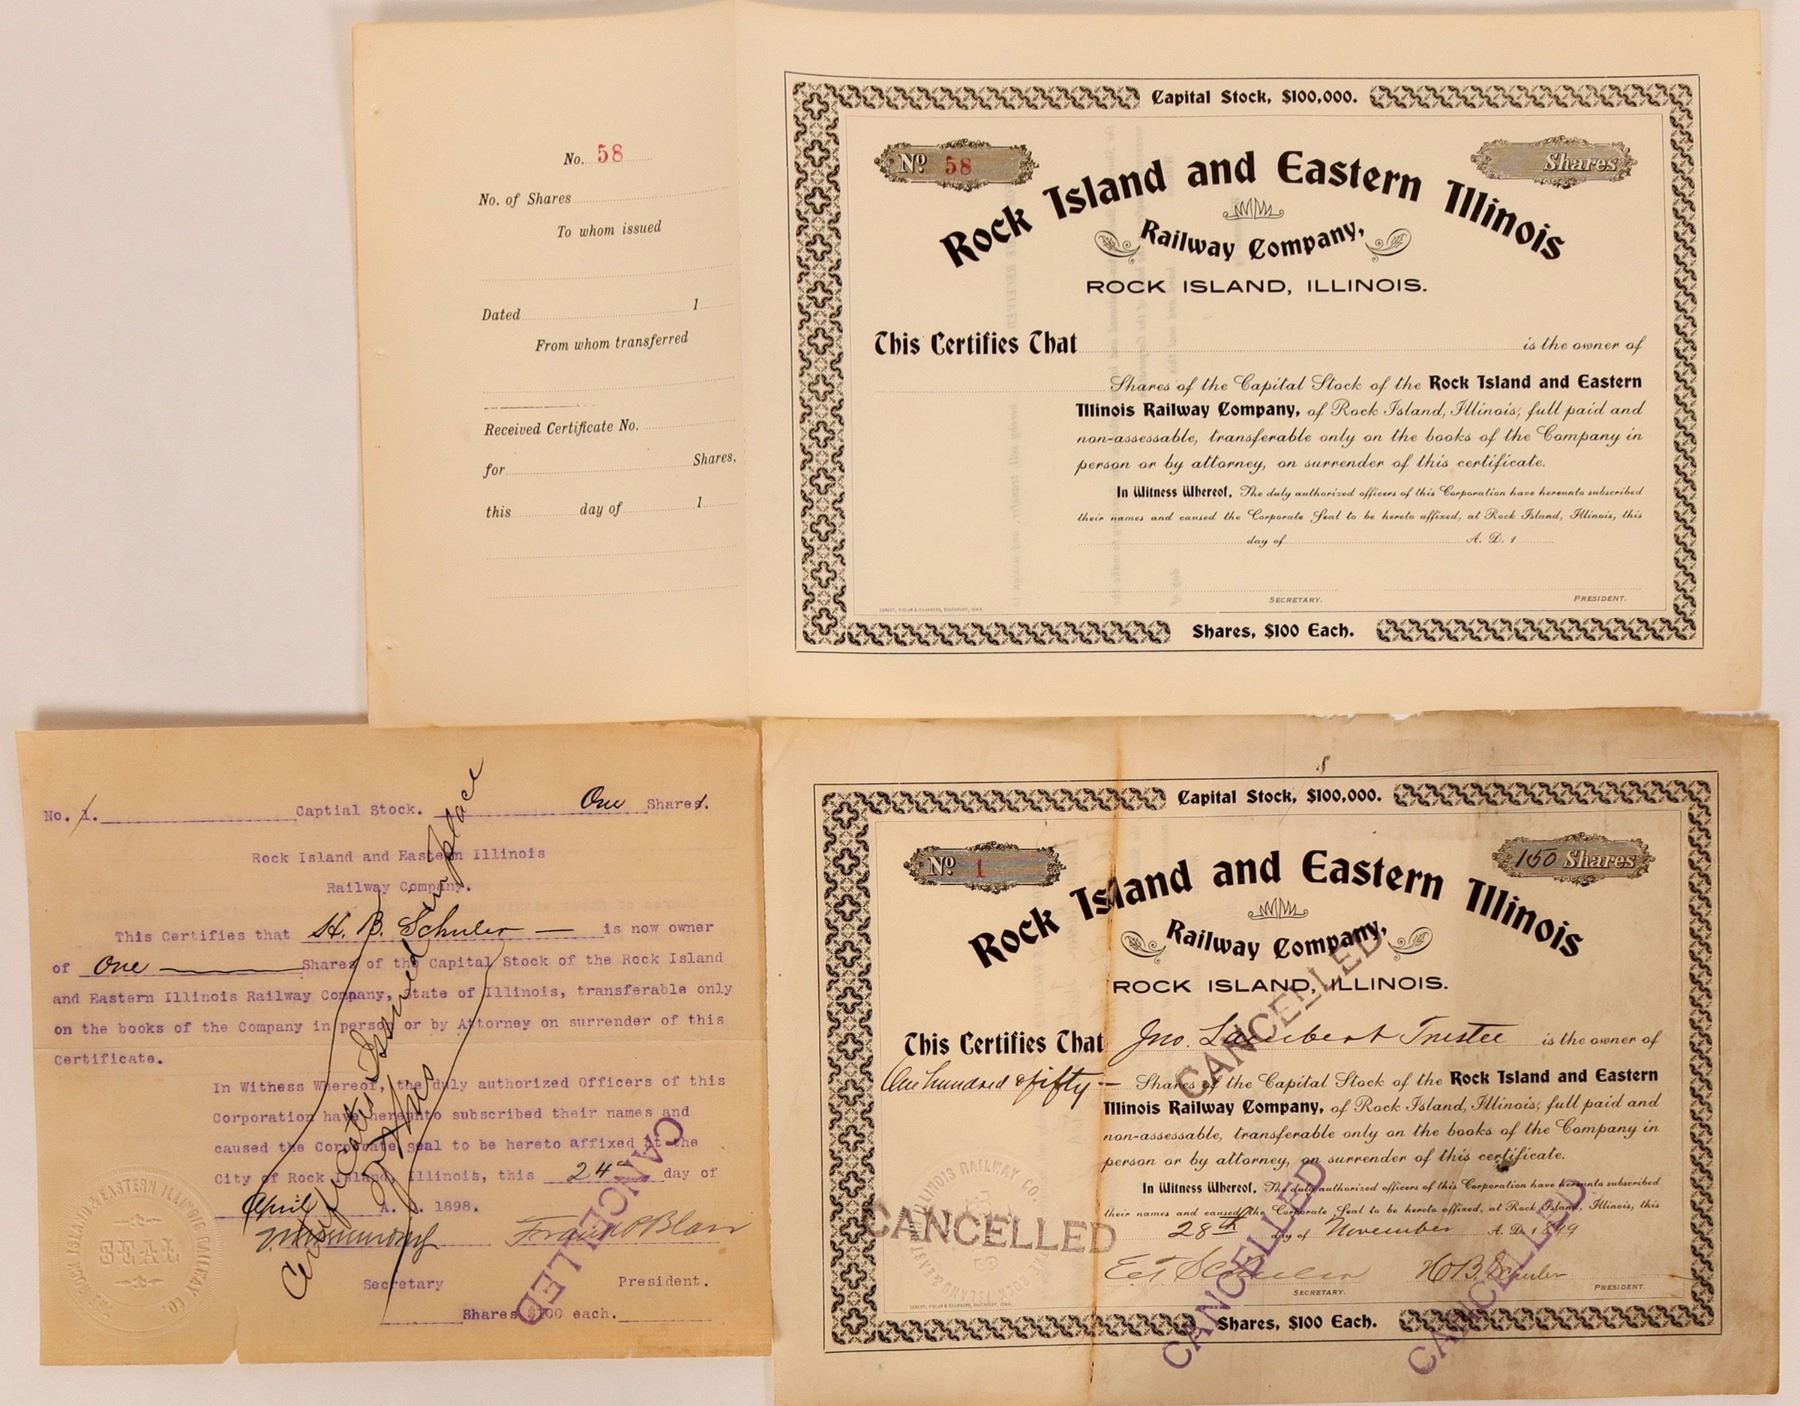 No. 58
No. of Shares
To whom issued
Dated 1
From whom transferred
Received Certificate No.
for Shares,
this day of 1
Capital Stock, $100,000.
No 58
Shares
Rock Island and Eastern Illinois
Railway Company,
ROCK ISLAND, ILLINOIS.
This Certifies That is the owner of
Shares of the Capital Stock of the Rock Island and Eastern
Illinois Railway Company, of Rock Island, Illinois, full paid and
non-assessable, transferable only on the books of the Company in
person or by attorney, on surrender of this certificate.
In Witness Whereof, The duly authorized officers of this Corporation have hereunto subscribed
their names and caused the Corporate Seal to be hereto affixed, at Rock Island, Illinois, this
day of A. D. 1
SECRETARY. PRESIDENT.
Shares, $100 Each.
No. 1. Captial Stock. One Shares.
Rock Island and Eastern Illinois
Railway Company.
This Certifies that H. B. Schuler is now owner
of One Shares of the Capital Stock of the Rock Island
and Eastern Illinois Railway Company, State of Illinois, transferable only
on the books of the Company in person or by Attorney on surrender of this
Certificate.
In Witness Whereof, the duly authorized Officers of this
Corporation have hereunto subscribed their names and
caused the Corporate Seal to be hereto affixed at the
City of Rock Island, Illinois, this 24th day of
April A. D. 1898.
Frank P Blair
Secretary President.
Shares $100 each.
CANCELLED
THE ROCK ISLAND & EASTERN ILLINOIS RAILWAY CO.
SEAL
Capital Stock, $100,000.
No 1
150 Shares
Rock Island and Eastern Illinois
Railway Company,
ROCK ISLAND, ILLINOIS.
This Certifies That Jno. Lambert Trustee is the owner of
One hundred & fifty Shares of the Capital Stock of the Rock Island and Eastern
Illinois Railway Company, of Rock Island, Illinois, full paid and
non-assessable, transferable only on the books of the Company in
person or by attorney, on surrender of this certificate.
In Witness Whereof, The duly authorized officers of this Corporation have hereunto subscribed
their names and caused the Corporate Seal to be hereto affixed, at Rock Island, Illinois, this
28th day of November A. D. 1899
H B. Schuler
SECRETARY. PRESIDENT.
Shares, $100 Each.
CANCELLED
CANCELLED
CANCELLED
CANCELLED